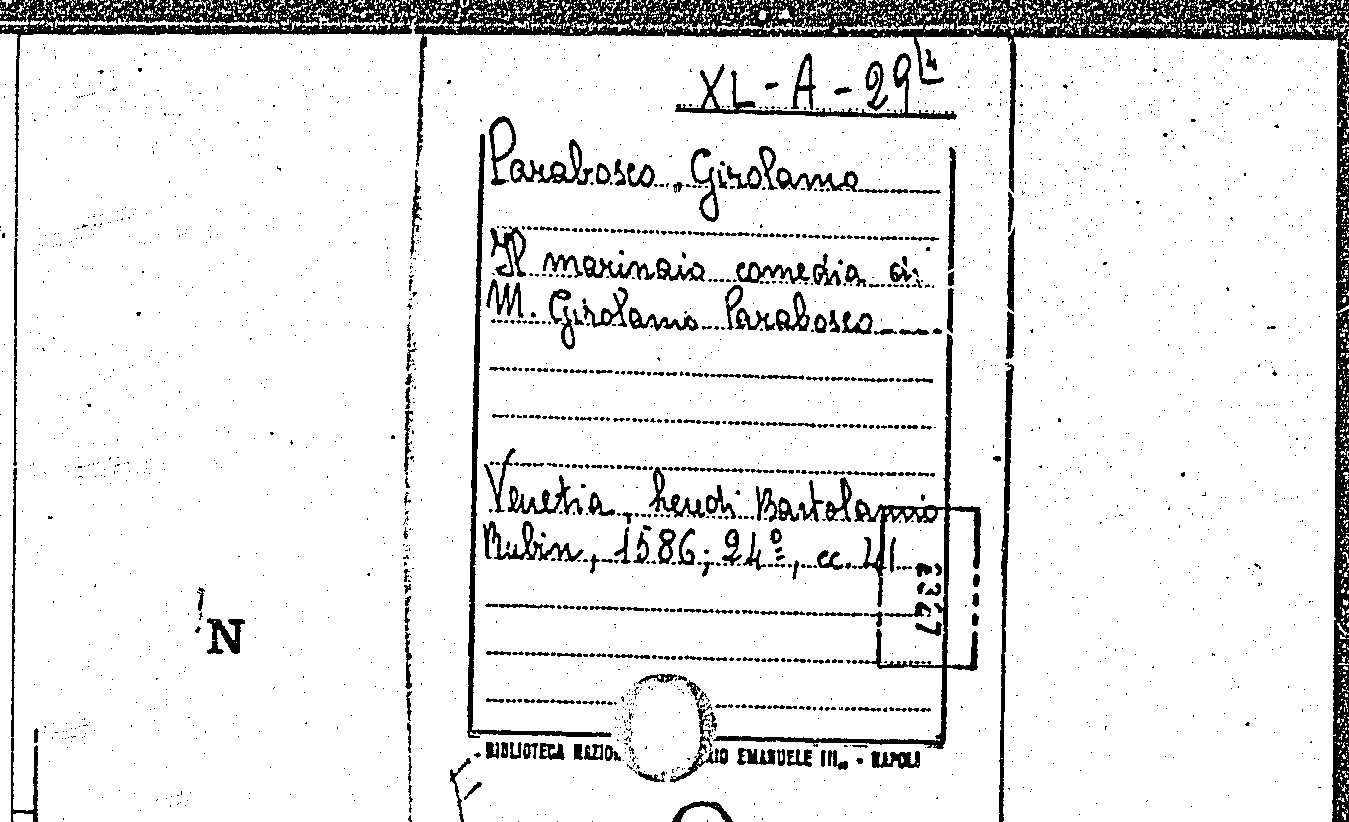 XL-A-29 4
Parabosco, Girolamo
Il marinaio comedia di
M. Girolamo Parabosco
Venetia, heredi Bartolamio
Rubin, 1586; 24º, cc.
N
BIBLIOTECA EMANUELE III - NAPOLI